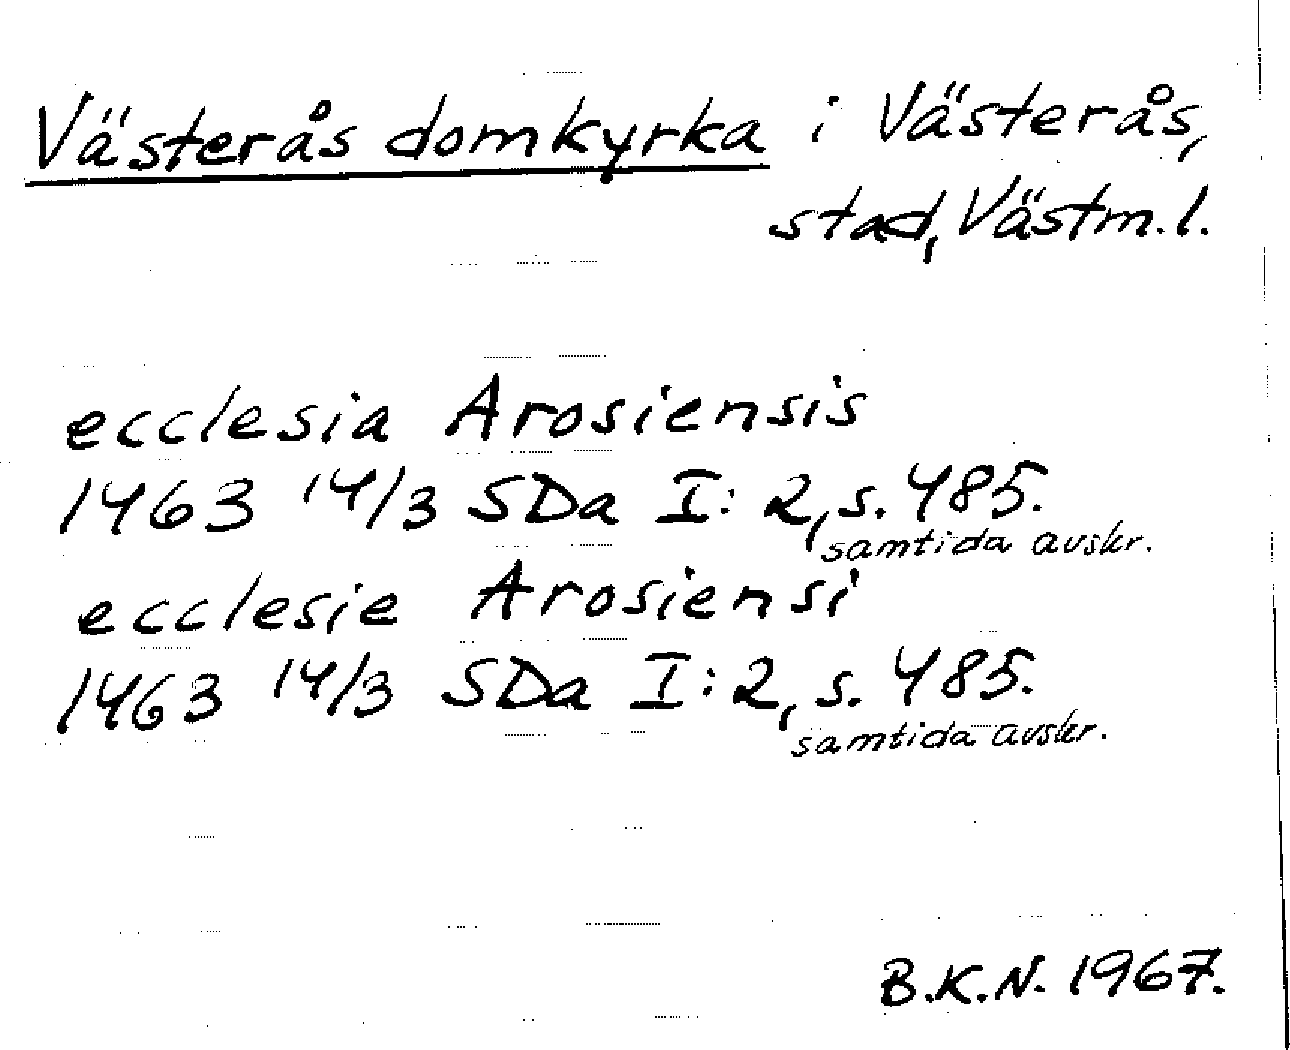 Västerås domkyrka i Västerås,
stad, Västm.l.
ecclesia Arosiensis
1463 14/3 SDa I:2, s. 485.
samtida avskr.
ecclesie Arosiensi
1463 14/3 SDa I:2, s. 485.
samtida avskr.
B.K.N. 1967.